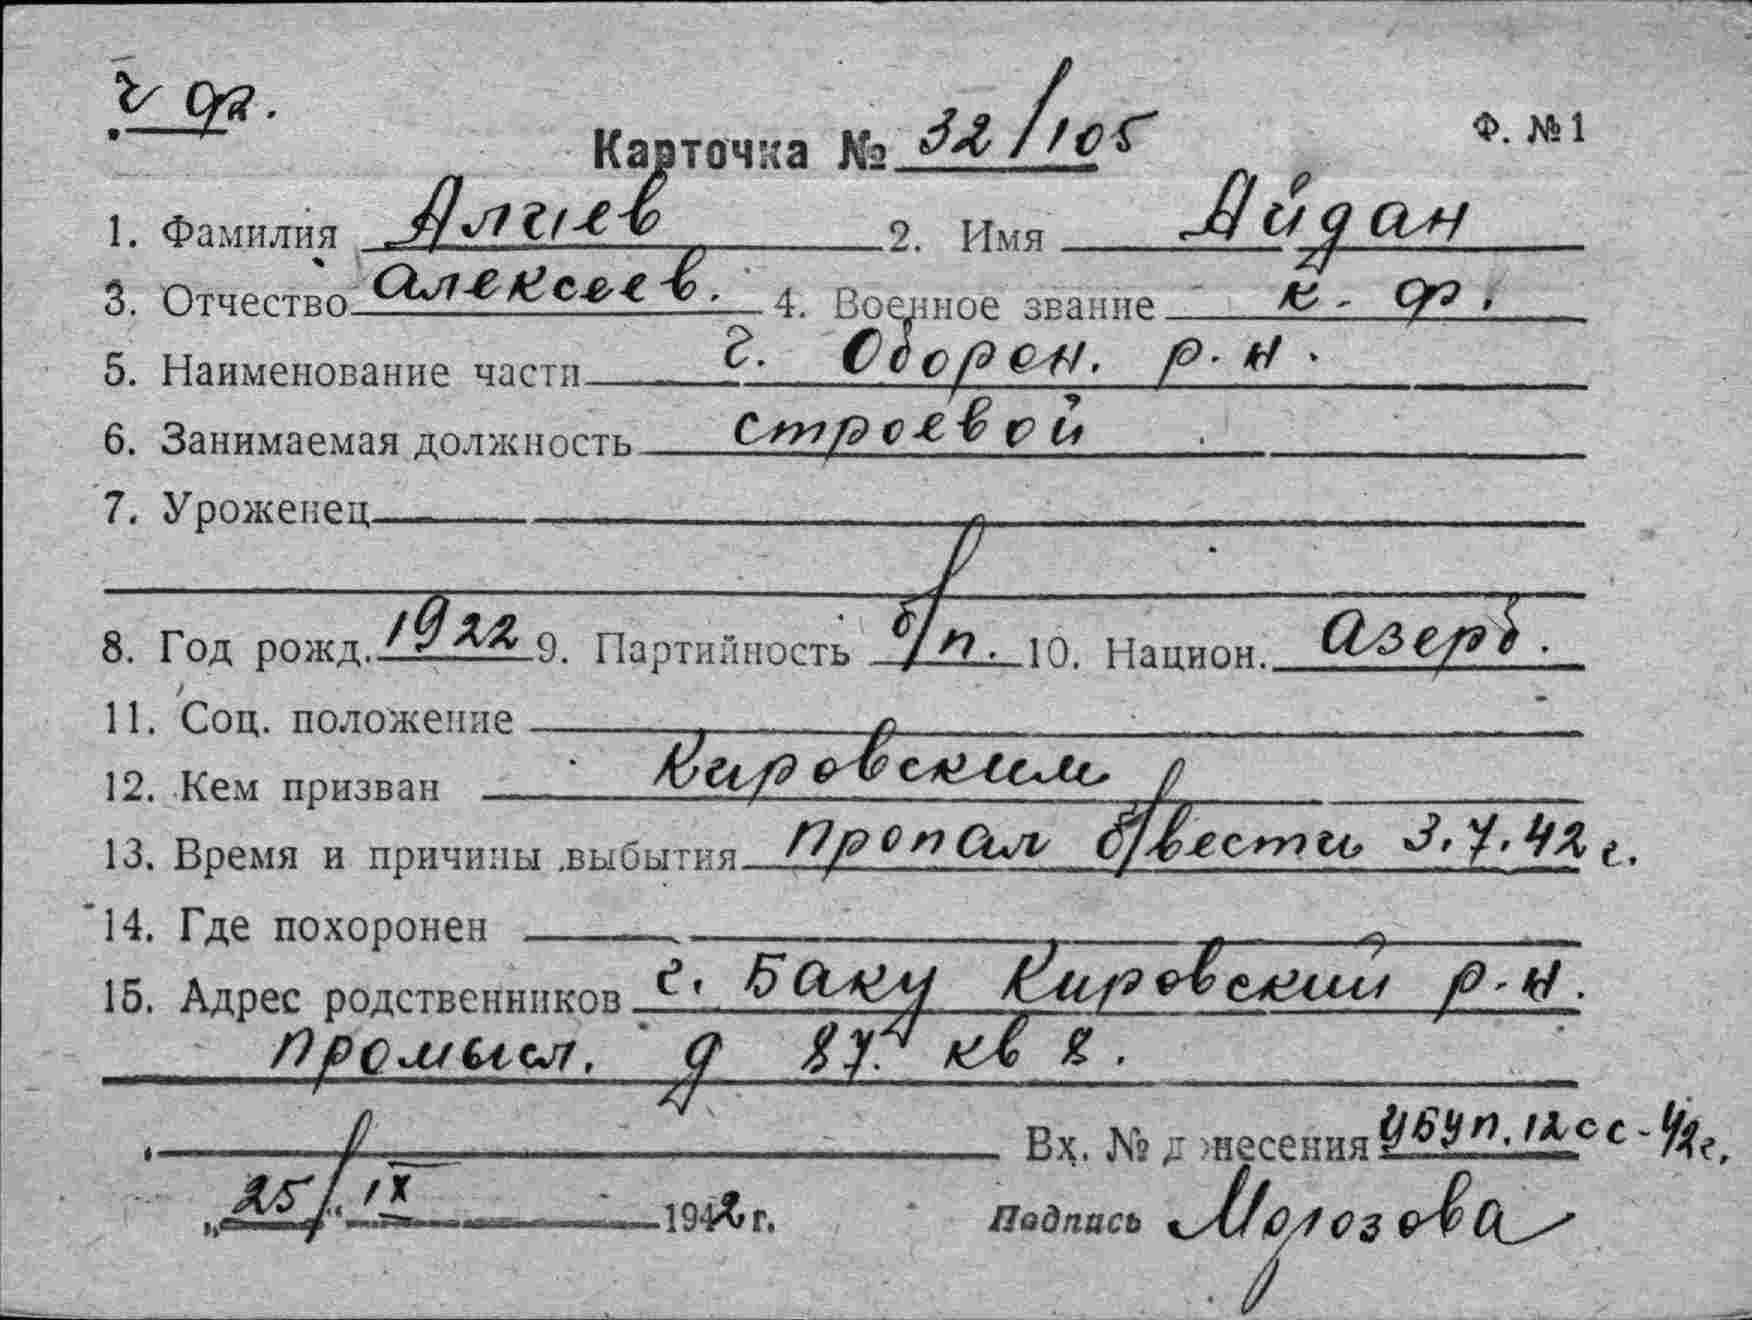 Ч ф.
Карточка № 32/105 Ф. №1
1. Фамилия Алиев 2. Имя Айдан
3. Отчество Алексеев. 4. Военное звание к-ф.
5. Наименование части Ч. Оборон. р-н.
6. Занимаемая должность строевой
7. Уроженец
8. Год рожд. 1922 9. Партийность б/п. 10. Национ. Азерб.
11. Соц. положение
12. Кем призван Кировским
13. Время и причины выбытия Пропал б/вести 3.7.42 г.
14. Где похоронен
15. Адрес родственников г. Баку Кировский р-н.
Промысл. д 87. кв 8.
Вх. № донесения 12сс-42г.
„25/“ IX 1942 г. Подпись Морозова